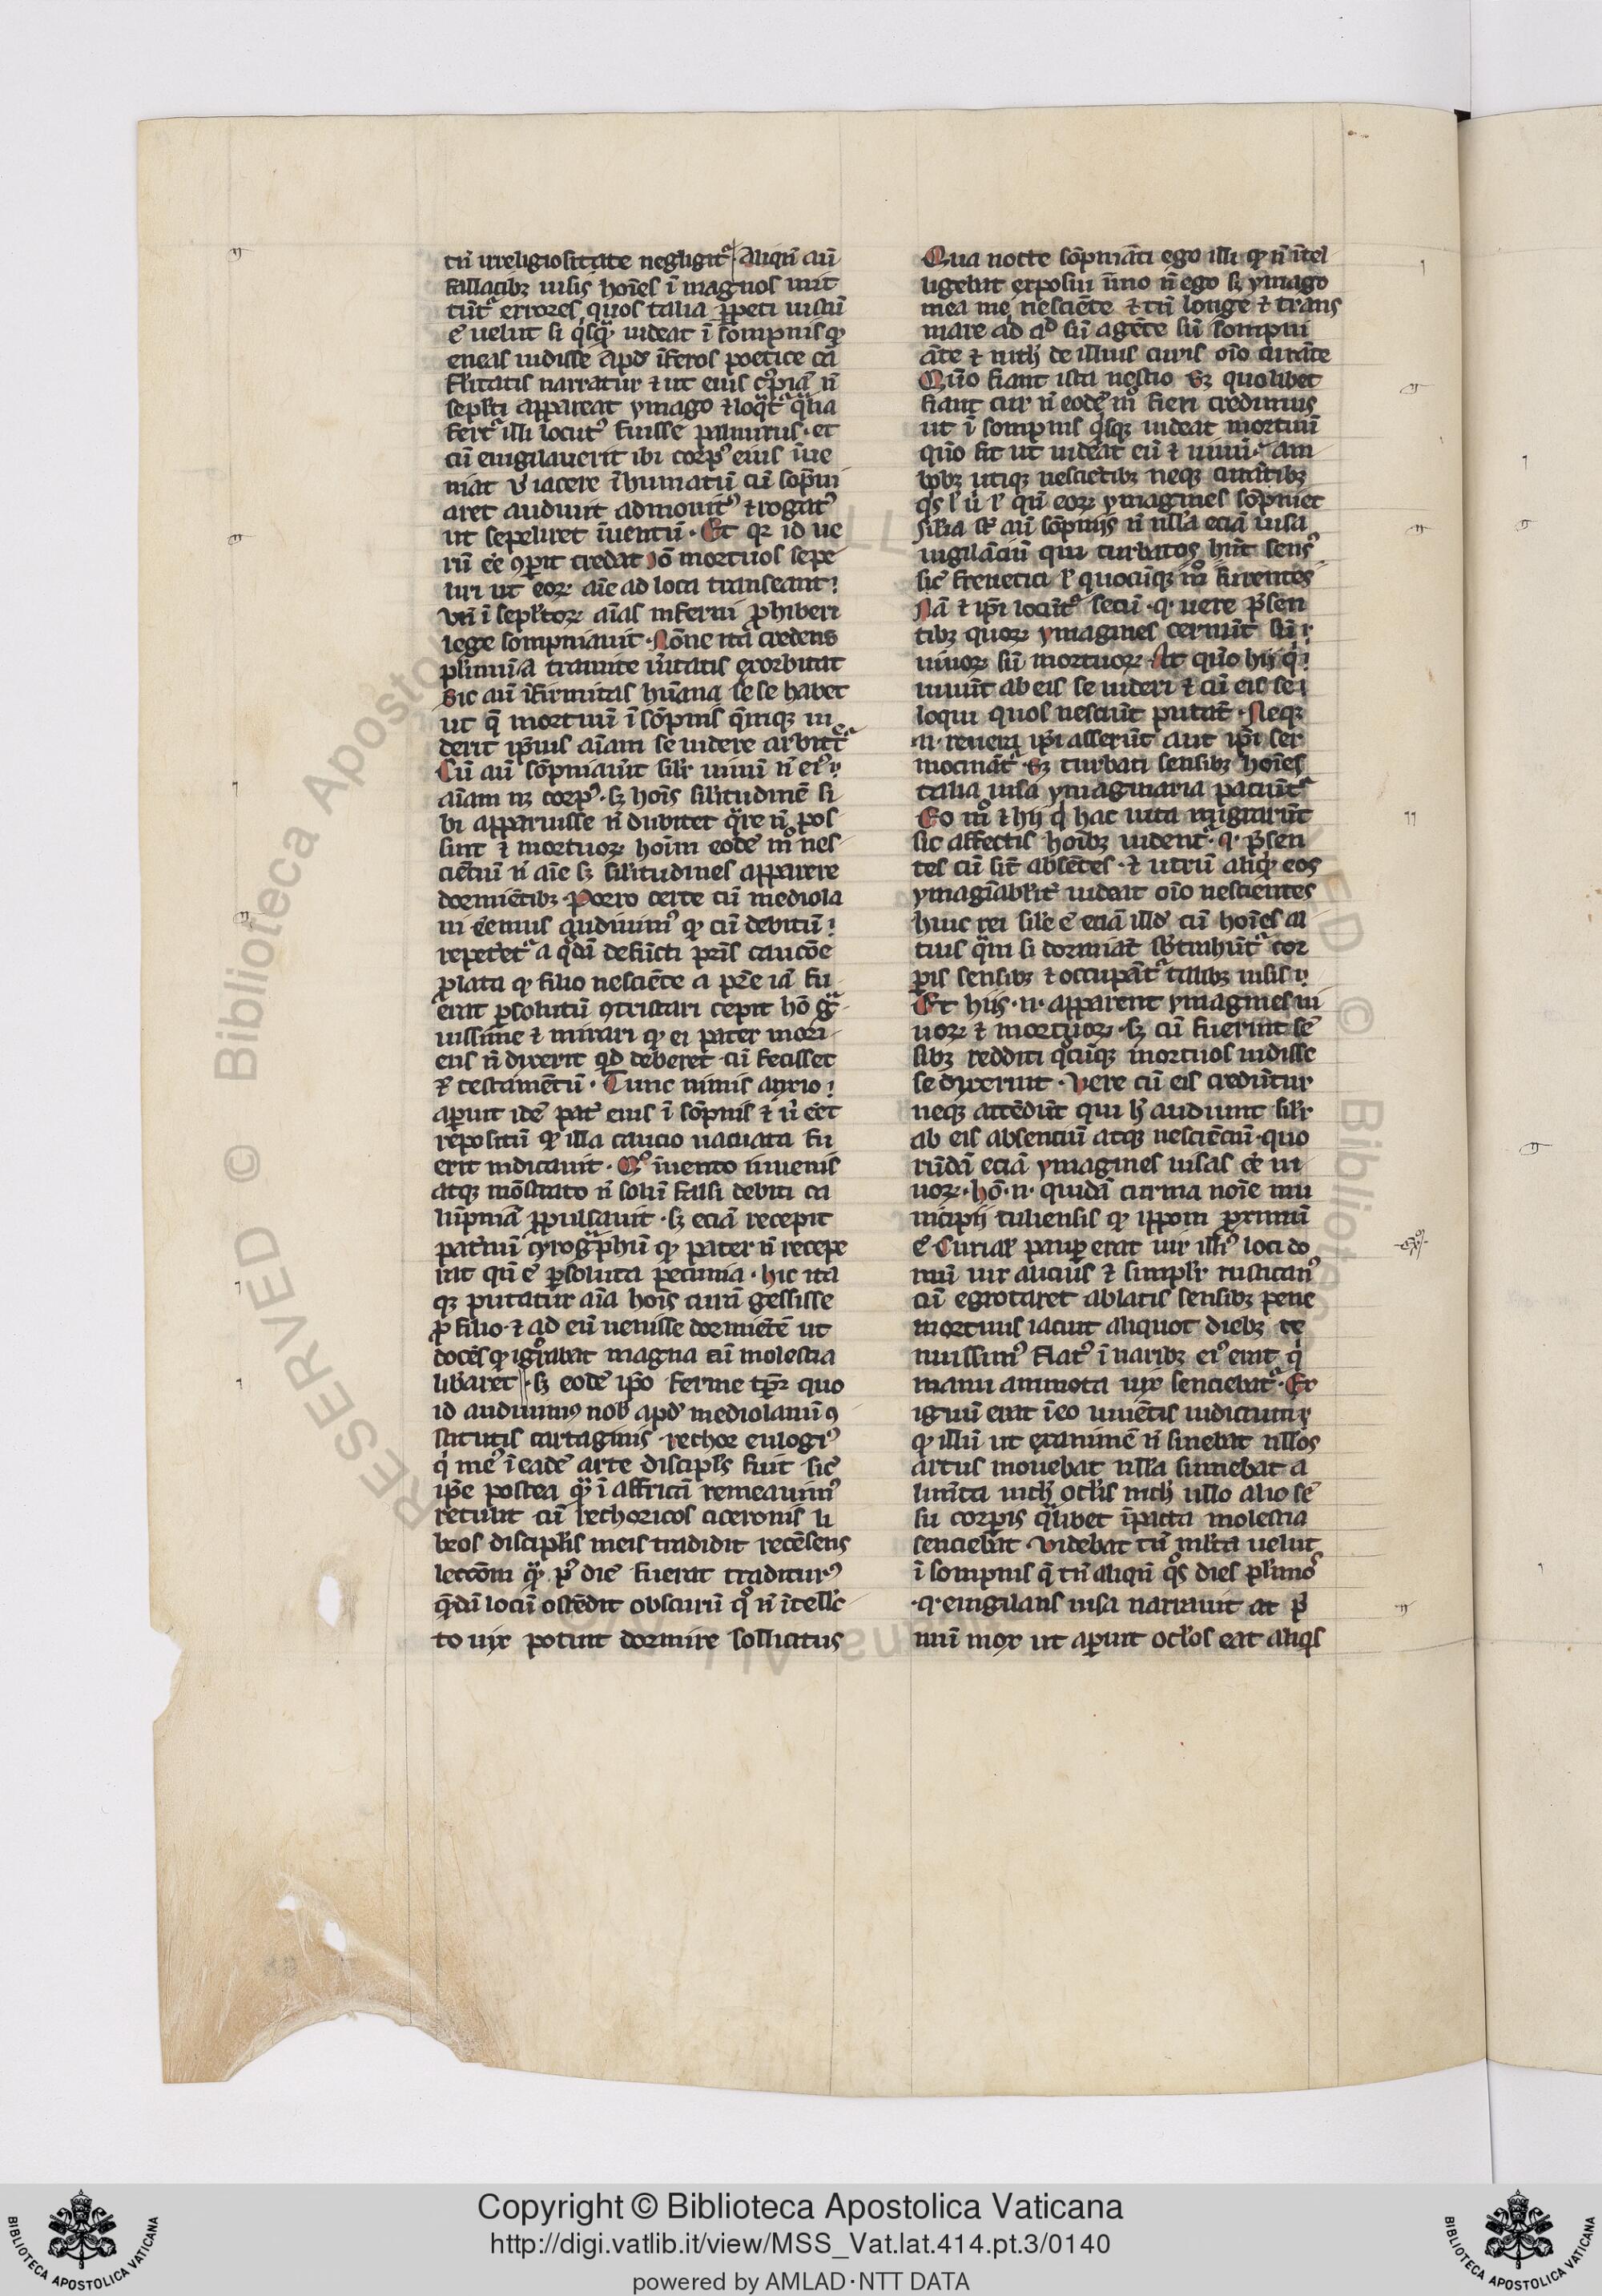 tn̄ irreligiositate negligit᷑ Aliqn̄ aū
fallacibꝫ uisis hoīes ī magnos mit
tūt᷑ errores quos talia ꝑpeti iustū
ē uelut si q̇sq̄ uideat ī sompnis qͥ
eneas uidisse apḋ īferos poetice ca
narratur ⁊ ut eius
appareat ymago ⁊ loq̄t᷑
fert᷑ illi locutꝰ fuisse palinurus · et
cū euigilauerit ibi corpꝰ eius īue
niat v̇ iacere īhumatū cū sōpni
aret audiuit admonitꝰ ⁊ rogatꝰ
ut sepeliret īuentū · Et qꝛ id ue
rū ēe ꝯꝑit credat iō mortuos sepe
liri ut eoꝝ aīe ad loca transeant
vn̄ ī seplt̄oꝝ aīas inferni ꝓhiberi
lege sompniauit · Nōne ita credens
plīmū a tramite ūitatis exorbitat
Sic aū īfirmitas hūana sese habet
ut q̄ mortuū ī sōpnis q̄niqꝫ ui
derit ip̄ius aīam se uidere arbitret᷑
Cū aū sōpniauit silr̄ uiuū n̄ eiꝰ
aīam nꝫ corpꝰ · sꝫ hoīs silitudinē si
bi apparuisse n̄ dubitet q̄re n̄ pos
sint ⁊ mortuoꝝ hoīm eodē mͦ nes
ciētiū n̄ aīe sꝫ silitudines apparere
dormiētibꝫ · Porro certe cū mediola
ni eēmus audiuimꝰ qͥ cū debitū
repetet᷑ a q̇dā defūcti pr̄is caucōe
ꝓlata qͥ filio nesciēte a pr̄e iā fu
erat ꝑsolutū ꝯtristari cepit hō gͣ
uissime ⁊ mirari qͥ ei pater mori
ens n̄ dixerit qd̄ deberet cū fecisset
⁊ testamētū · Tunc nimis anxio
aꝑuit idē pat̄ eius ī sōpnis ⁊ u̇ eēt
repositū qͦ illa caucio uacuata fu
erit indicauit · Qͦ īuento iuuenis
atqꝫ mōstrato n̄ solū falsi debiti ca
lūpniā ꝓpulsauit · sꝫ eciā recepit
pat̄nū cyrogͣphū qͥ pater n̄ recepe
rat qn̄ ē ꝑsoluta pecunia · hic ita
qꝫ putatur aīa hoīs curā gessisse
ꝓ filio · ⁊ ad eū uenisse dormiētē ut
docēs qͥ ignͦrabat magna cū molestia
lib̄aret · sꝫ eodē ip̄o ferme tp̄r quo
id audiuimꝰ nob̄ apḋ mediolanū ꝯ
stitutis cartaginis rethor eulogiꝰ
q̇ meꝰ ī eadē arte discipls̄ fuit sic̄
ip̄e postea qͣ ī affricā remeauimꝰ
retulit cū rethoricos ciceronis li
bros disciplis̄ meis tradidit recēsens
leccōm qͣ pꝰ diē fuerat traditurꝰ
q̄dā locū ostēdit obscurū qͦ n̄ ītellc̄
to uix potuit dormire sollicitus
Qua nocte sōpniāti ego illi qͥ n̄ ītel
ligebat exposui īmo n̄ ego sꝫ ymago
mea me nesciēte ⁊ tū longe ⁊ trans
mare ad aḋ siū agēte siū sompni
āte ⁊ nich̄ de illius curis oīo curāte
Quō fiant ista nescio Sꝫ quolibet
fiant cur n̄ eodē mͦ fieri credimus
ut ī sompnis q̇sqꝫ uideat mortuū
quō fit ut uideat eū ⁊ uiuū am
bobꝫ utiqꝫ nescietibꝫ neqꝫ curātibꝫ
qͥs l̄ u̇ l̄ qn̄ eoꝝ ymagines sōpniet
Silia st̄ aū sōpnijs n̄ nlla eciā uisa
uigilāciū qui turbatos hn̄t sensꝰ
sic̄ frenetici l̄ quocūqꝫ mͦ furentes
Nā ⁊ ip̄i locūt᷑ secū · qͥ uere p̄sen
tibꝫ quoꝝ ymagines cernūt siū
uiuoꝝ siū mortuoꝝ · At quō hij q̇
uiuūt ab eis se uideri ⁊ cū eis se
loqui quos nesciūt putāt · Neqꝫ
·n· reuera ip̄i asserūt aut ip̄i ser
mocināt᷑ · Sꝫ turbati sensibꝫ hoīes
talia uisa ymaginaria paciūt᷑
Eo mͦ ⁊ hij q̇ hac uita migrarūt
sic affectis hoībꝫ uident᷑ · qͥ p̄sen
tes cū sīt absētes · ⁊ utrū aliq̇ eos
ymagīabilit̄ uideat oīo nescientes
huic rei sile ē eciā illḋ cū hoīes al
tius qͣm si dormiāt sb̄trahūt᷑ cor
ꝑis sensibꝫ ⁊ occupāt᷑ talibꝫ uisis
Et hijs · n · apparent ymagines ui
uoꝝ ⁊ mortuoꝝ · sꝫ cū fuerint sē
sibꝫ redditi qͦcūqꝫ mortuos uidisse
se dixerint · Vere cū eis credūtur
neqꝫ attēdūt qui h̄ audiunt silr̄
ab eis absentiū atqꝫ nesciēciū · quo
rūdā eciā ymagines uisas ēe ui
uoꝝ · hō · n · quidā curma noīe mu
nicipij tuliensis qͥ ipponi ꝓximū
ē Curial̄ pauꝑ erat uir illiꝰ loci do
mū uir aucius ⁊ simplr̄ rusticanꝰ
cū egrotaret ablatis sensibꝫ pene
mortuus iacuit aliquot diebꝫ te
nuissimꝰ flatꝰ ī naribꝫ eiꝰ erat q̇
manu ammota uix senciebat᷑ · Ex
iguū erat ī eo uiuētis
qͥ illū ut exanimē n̄ sinebat nllos
artus mouebat nlla sumebat a
limēta nich̄ ocl̄is nich̄ ullo alio sē
su corꝑis q̄libet īpacta molestia
senciebat · Videbat tn̄ ml̄ta uelut
ī sompnis q̄ tn̄ aliqn̄ pͦs dies plīmos
· qͥ euigilans uisa narrauit at p̄
mū mox ut aꝑuit ocl̄os eat aliq̇s
Copyright © Biblioteca Apostolica Vaticana
http://digi.vatlib.it/view/MSS_Vat.lat.414.pt.3/0140
powered by AMLAD·NTT DATA